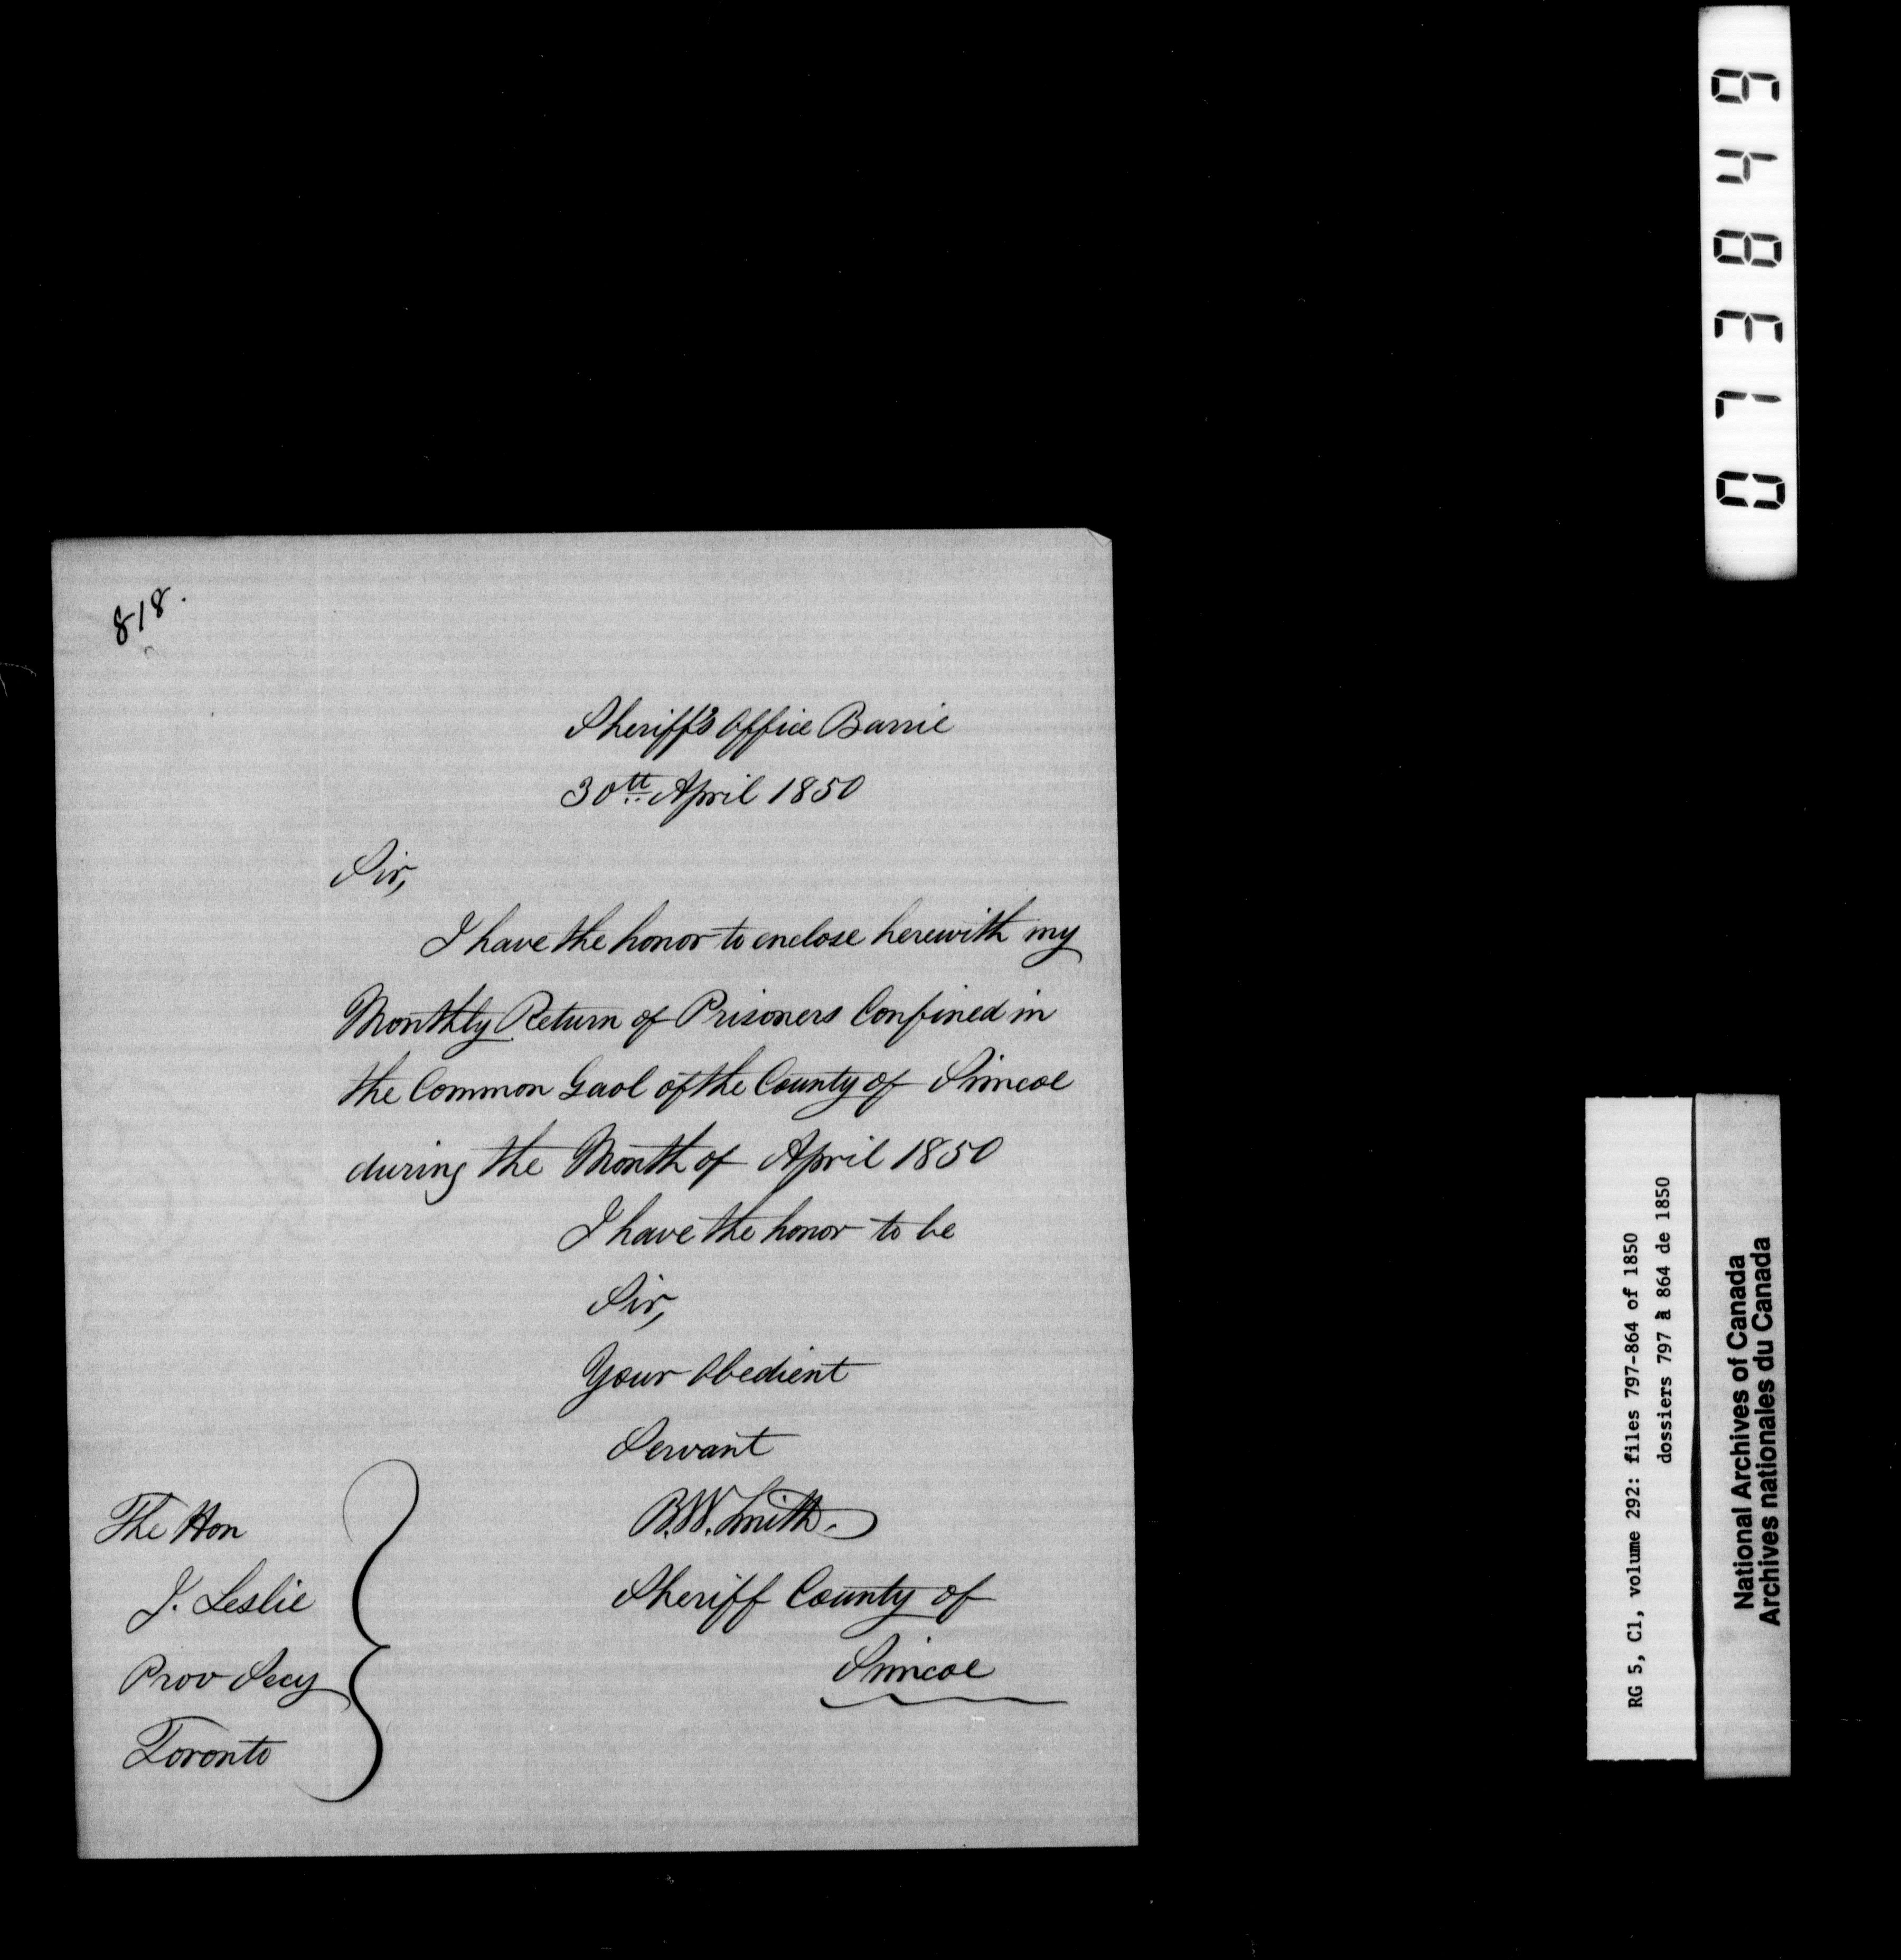 818.
Sheriff's Office Barrie
30th April 1850
Sir,
I have the honor to enclose herewith my
Monthly Return of Prisoners Confined in
the Common Gaol of the County of Simcoe
during the Month of April 1850
I have the honor to be
Sir,
Your Obedient
Servant
B.W. Smith.
Sheriff County of
Simcoe
The Hon
J. Leslie
Prov Secy
Toronto
013849
RG 5, C1, volume 292: files 797-864 of 1850
dossiers 797 à 864 de 1850
National Archives of Canada
Archives nationales du Canada